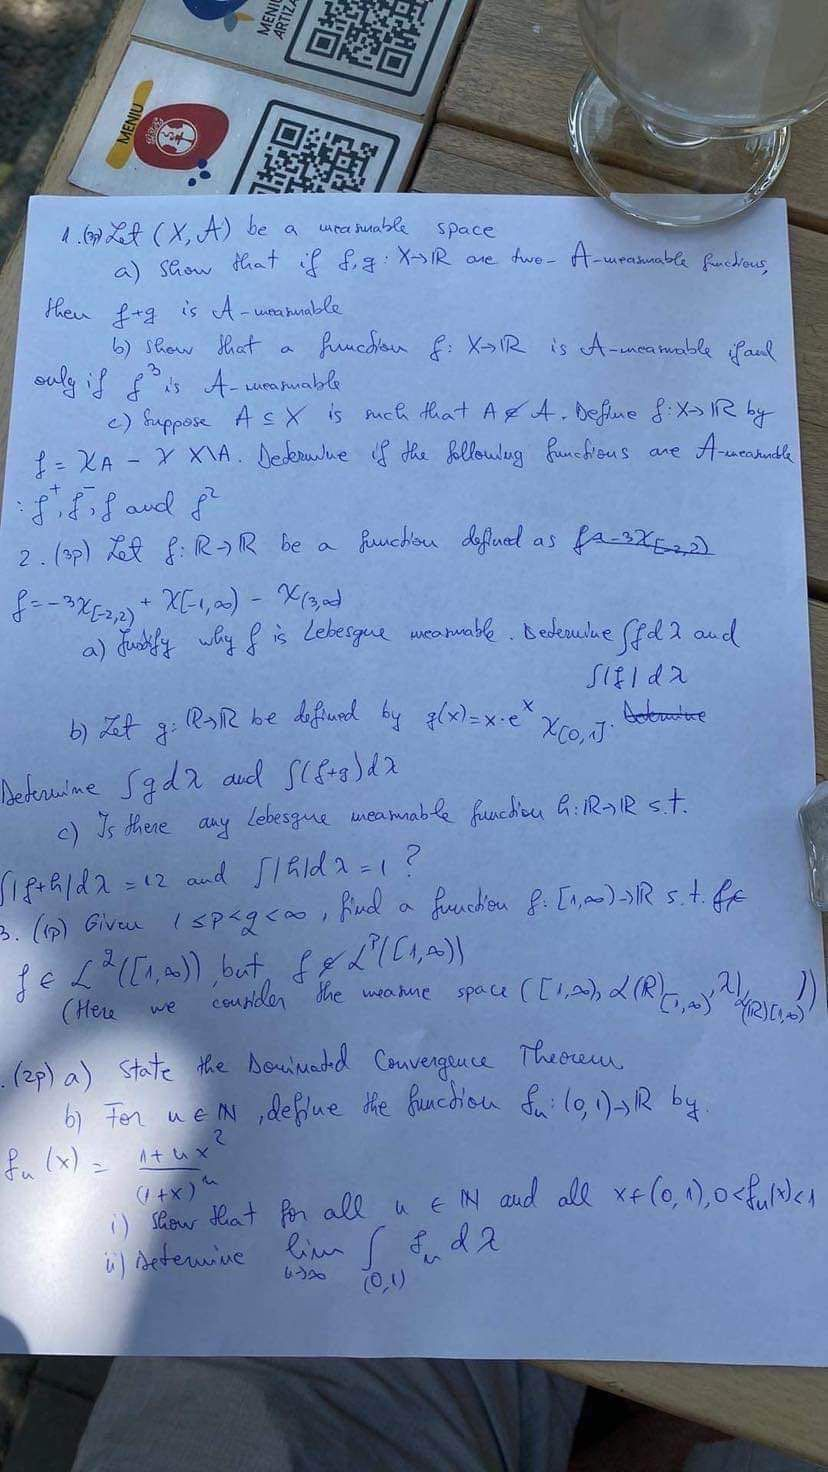 MENIU
ARTIZA
MENIU
1.(3p) Let (X, A) be a measurable space
a) Show that if f,g : X→ℝ are two A-measurable functions,
then f+g is A-measurable
b) Show that a function f: X→ℝ is A-measurable if and
only if f³ is A-measurable
c) Suppose A ⊆ X is such that A ∉ A. Define f: X→ℝ by
f = χ_A − χ X\A. Determine if the following functions are A-measurable
: f⁺, f⁻, f and f²
2. (3p) Let f: ℝ→ℝ be a function defined as
f = −3χ_[−2,2) + χ[−1,∞) − χ(3,∞)
a) Justify why f is Lebesgue measurable. Determine ∫f dλ and
∫|f| dλ
b) Let g: ℝ→ℝ be defined by g(x) = x·e^x χ_[0,1]. Determine
Determine ∫g dλ and ∫(f+g)dλ
c) Is there any Lebesgue measurable function h: ℝ→ℝ s.t.
∫|f+h|dλ = 12 and ∫|h|dλ = 1 ?
3. (1p) Given 1 ≤ p < q < ∞, find a function f: [1,∞)→ℝ s.t. f∈
f ∈ L^q([1,∞)), but f ∉ L^p([1,∞))
(Here we consider the measure space ([1,∞), L(ℝ)_[1,∞), λ|_L(ℝ)[1,∞)))
. (2p) a) State the Dominated Convergence Theorem
b) For n ∈ ℕ, define the function f_n: (0,1)→ℝ by.
f_n(x) = (1+nx²)/(1+x)^n
i) Show that for all n ∈ ℕ and all x∈(0,1), 0<f_n(x)<1
ii) Determine lim_{n→∞} ∫_(0,1) f_n dλ